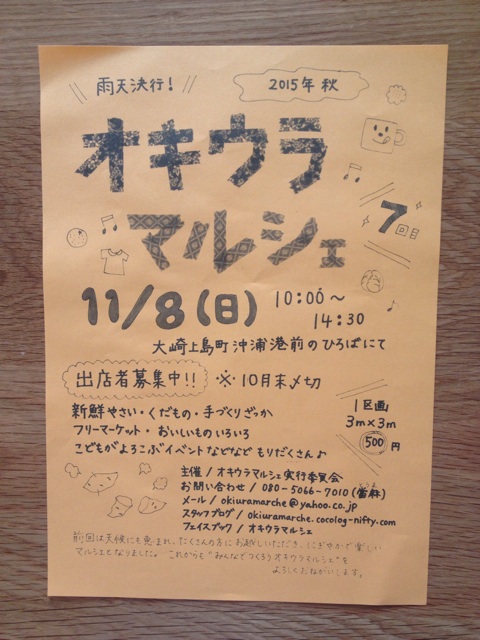 雨天決行!
2015年 秋
オキウラ
マルシェ
7回目
11/8(日) 10:00~
14:30
大崎上島町沖浦港前のひろばにて
出店者募集中!! ※10月末〆切
新鮮やさい・くだもの・手づくりざっか
フリーマーケット・おいしいものいろいろ
こどもがよろこぶイベントなどなど もりだくさん♪
1区画
3m×3m
500円
主催/オキウラマルシェ実行委員会
お問い合わせ/080-5066-7010(當麻)
メール/okiuramarche@yahoo.co.jp
スタッフブログ/okiuramarche.cocolog-nifty.com
フェイスブック/オキウラマルシェ
前回は天候にも恵まれ、たくさんの方にお越しいただき、にぎやかで楽しい
マルシェとなりました。これからも"みんなでつくろうオキウラマルシェ"を
よろしくおねがいします。